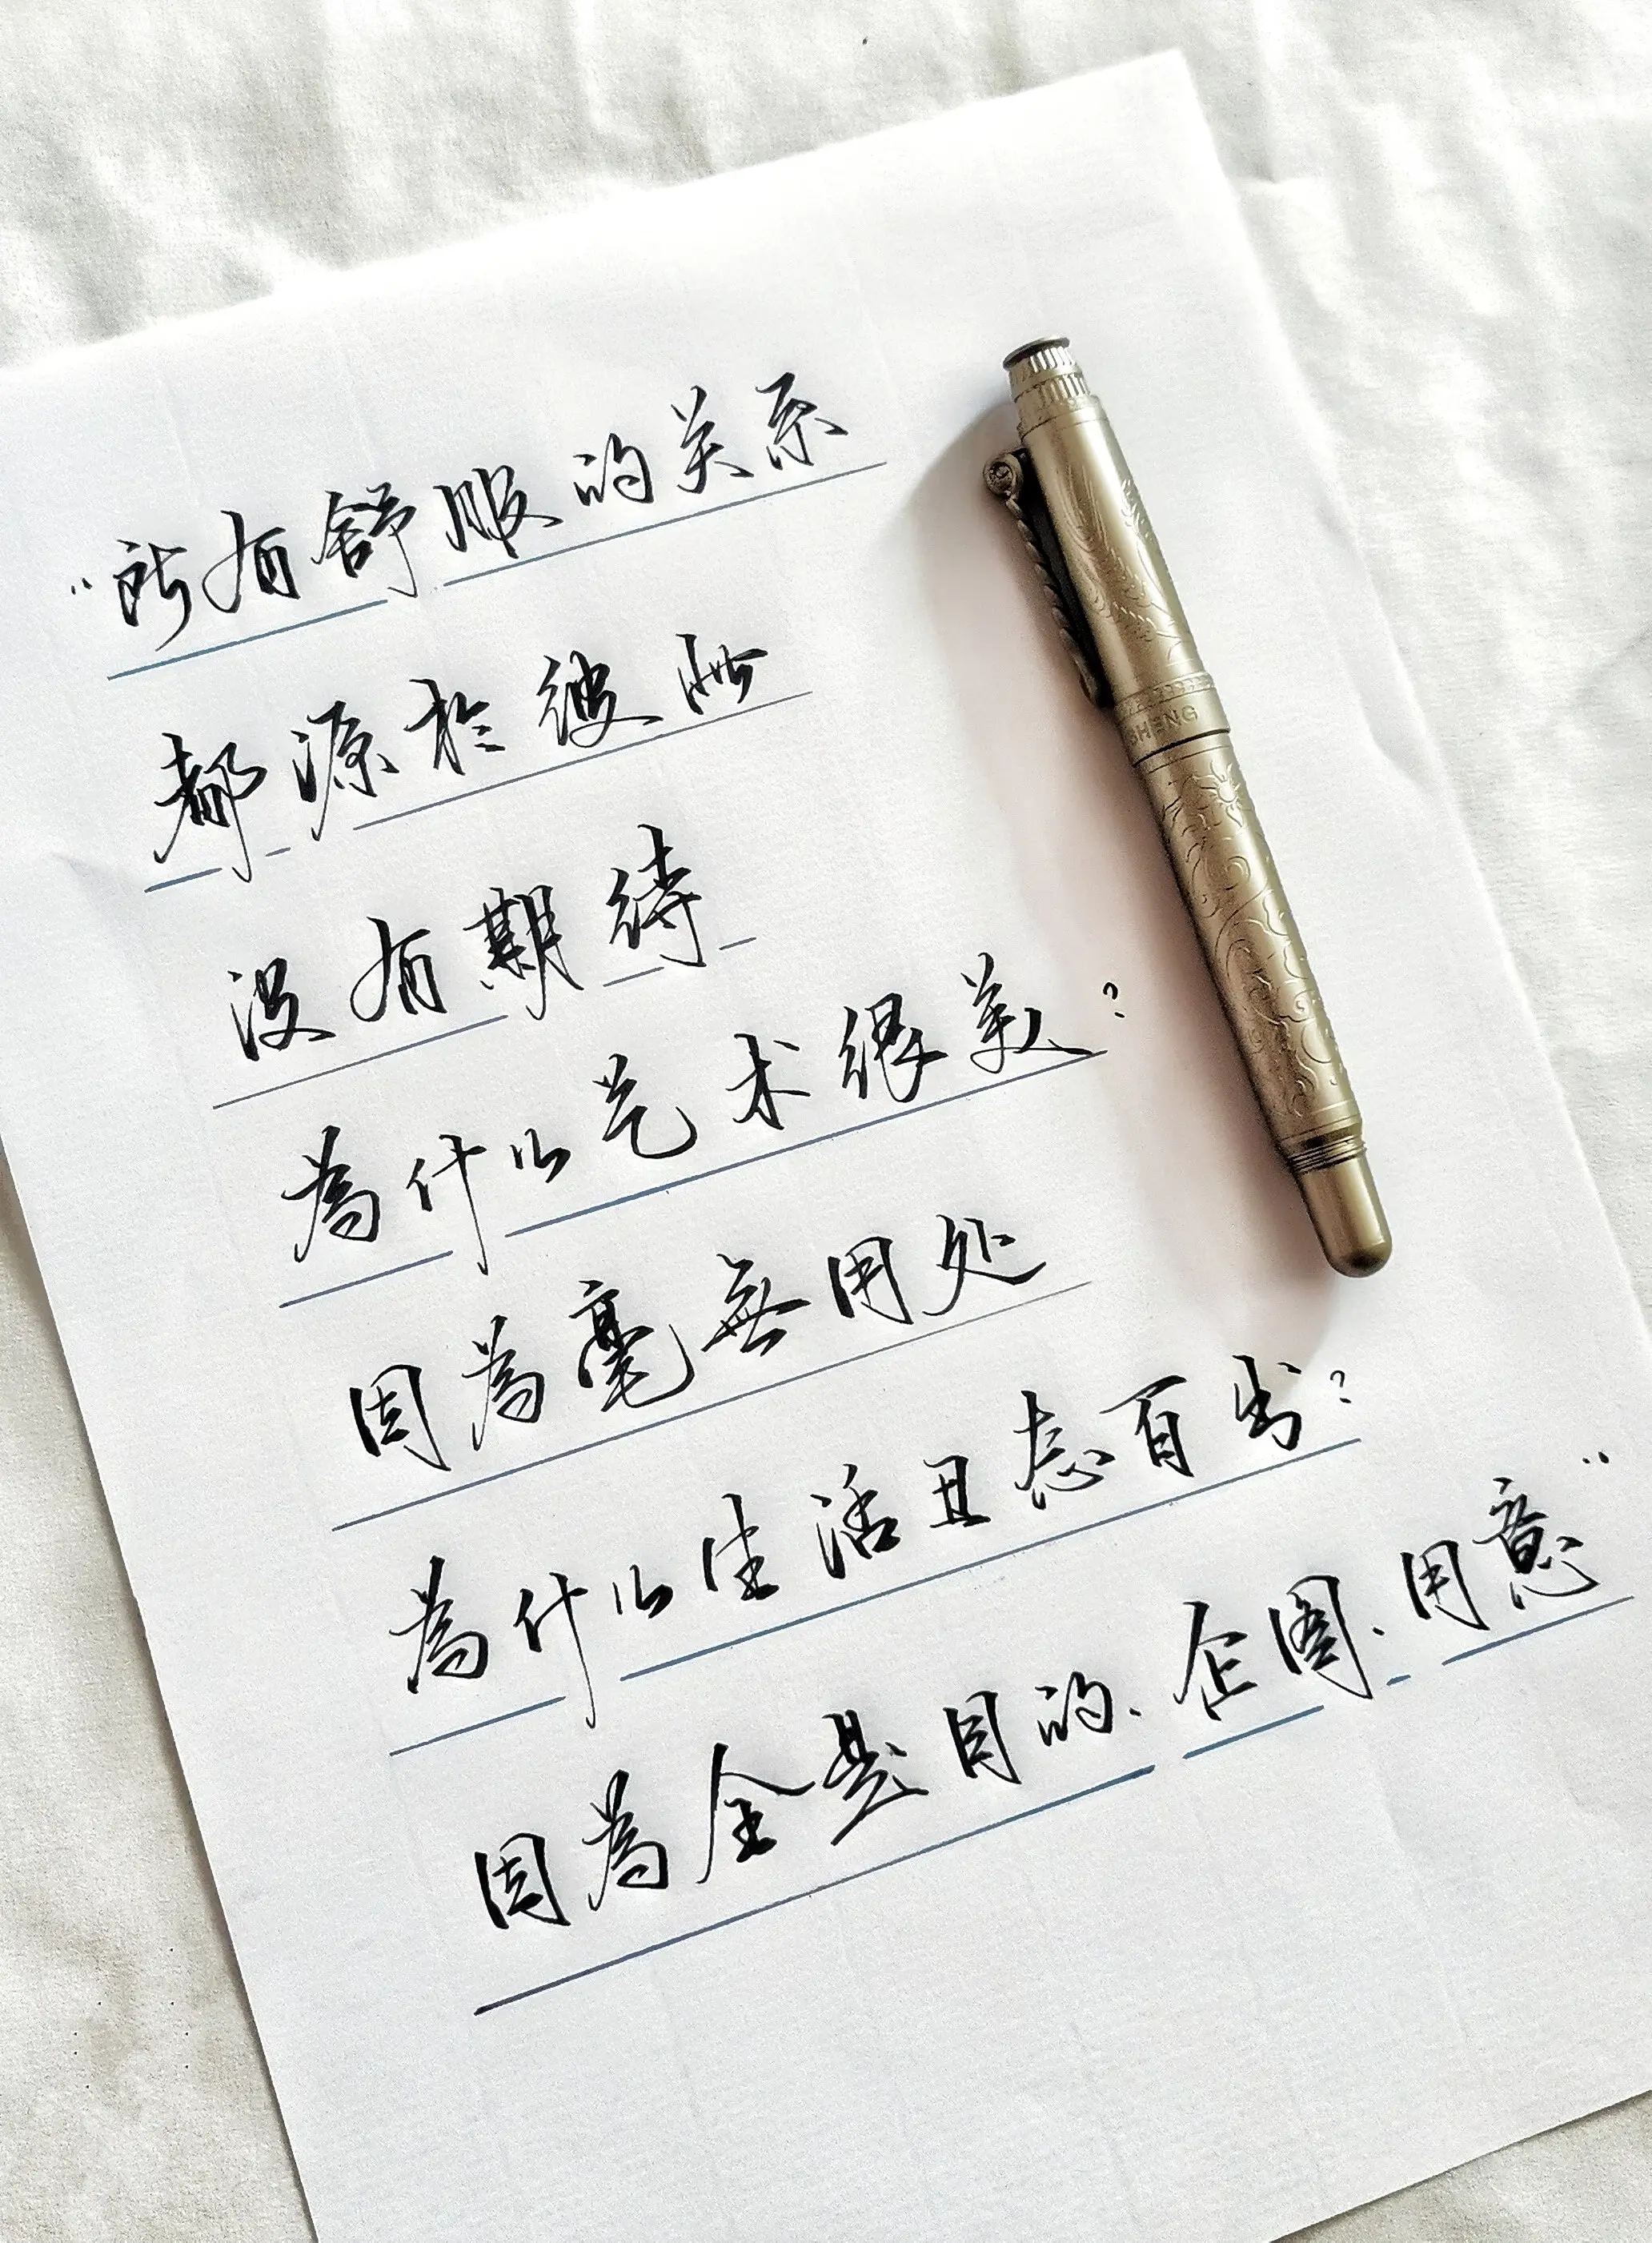 “所有舒服的关系
都源於彼此
没有期待
為什么艺术很美?
因為毫無用处
為什么生活丑态百出?
因為全是目的、企图、用意”
SHENG